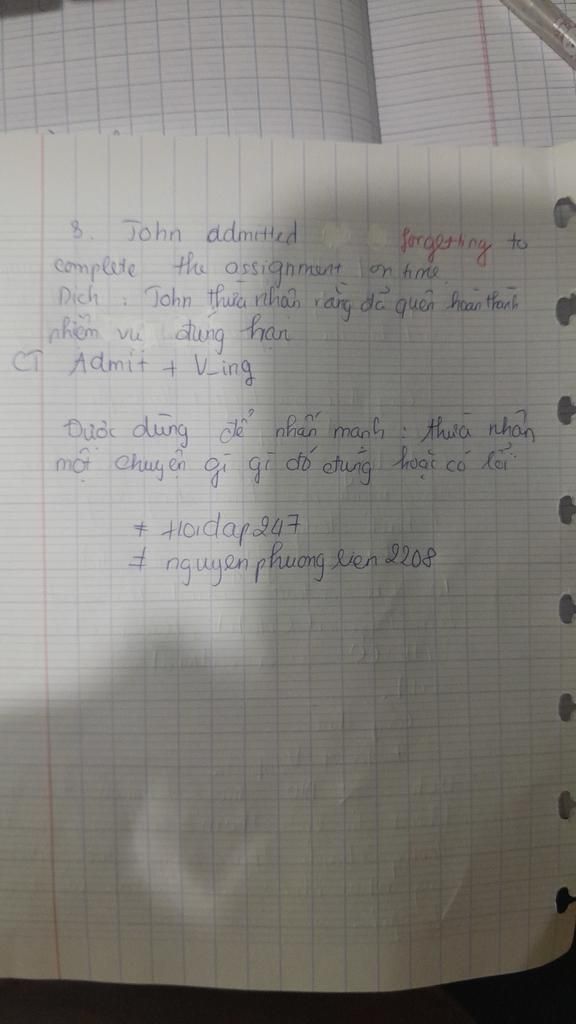 8. John admitted forgetting to
complete the assignment on time
Dịch : John thừa nhận rằng đã quên hoàn thành
nhiệm vụ đúng hạn
CT Admit + V_ing
Được dùng để nhấn mạnh : thừa nhận
một chuyện gì gì đó đúng hoặc có lỗi
≠ Hoidap247
≠ nguyenphuonglien2208